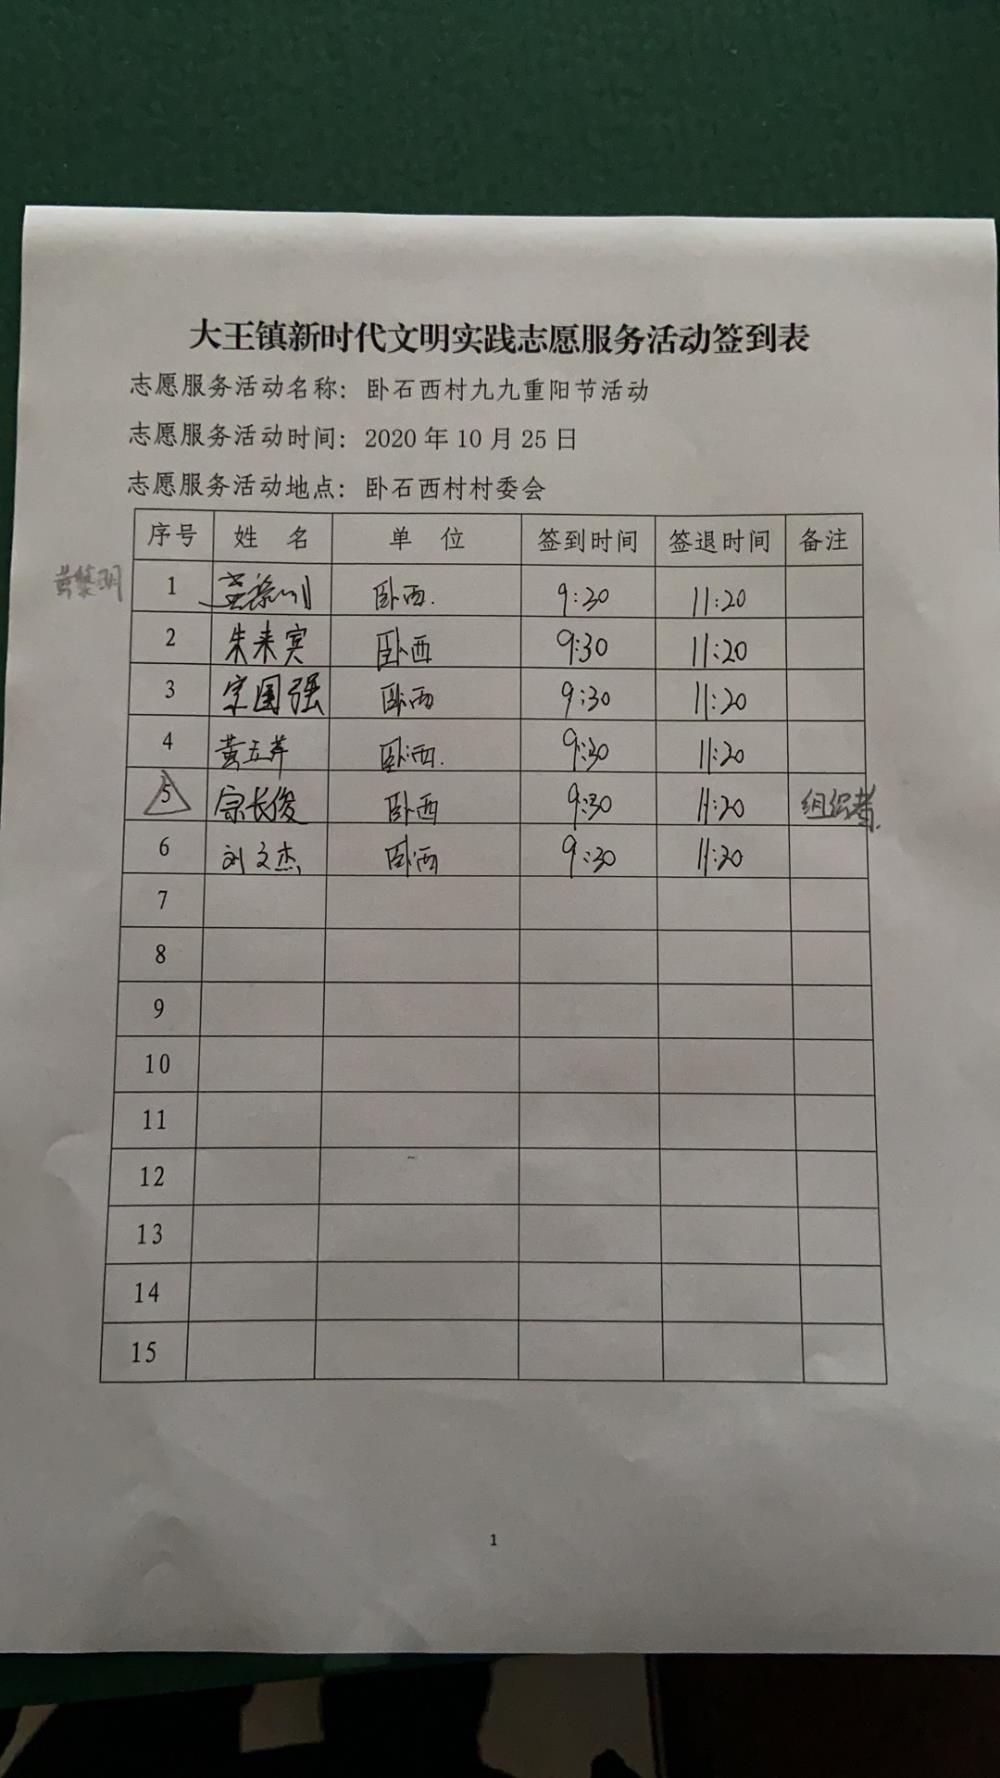 大王镇新时代文明实践志愿服务活动签到表
志愿服务活动名称：卧石西村九九重阳节活动
志愿服务活动时间：2020 年 10 月 25 日
志愿服务活动地点：卧石西村村委会
序号 姓 名 单 位 签到时间 签退时间 备注
黄黎明 1 卧西. 9:30 11:20
2 朱来宾 卧西 9:30 11:20
3 宗国强 卧西 9:30 11:20
4 黄五芹 卧西. 9:30 11:20
5 宗长俊 卧西 9:30 11:20 组织者.
6 刘文杰 卧西 9:30 11:20
7
8
9
10
11
12
13
14
15
1